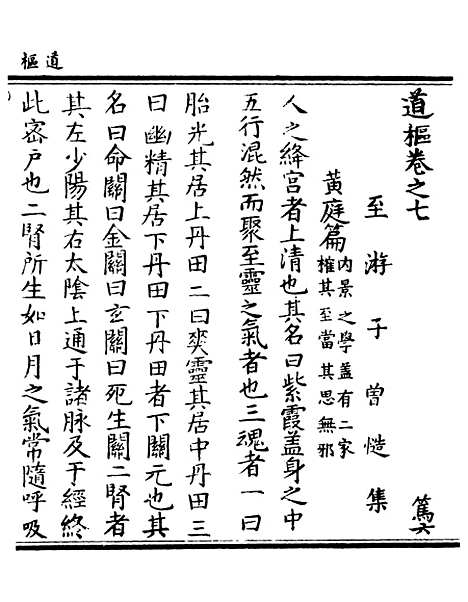 道樞
道樞卷之七　篤
至游子曾慥集
黃庭篇
內景之學蓋有二家
榷其至當其思無邪
人之絳宮者上清也其名曰紫霞蓋身之中
五行混然而聚至靈之氣者也三魂者一曰
胎光其居上丹田二曰爽靈其居中丹田三
曰幽精其居下丹田下丹田者下關元也其
名曰命關曰金關曰玄關曰死生關二腎者
其左少陽其右太陰上通于諸脉及于經終
此密戶也二腎所生如日月之氣常隨呼吸